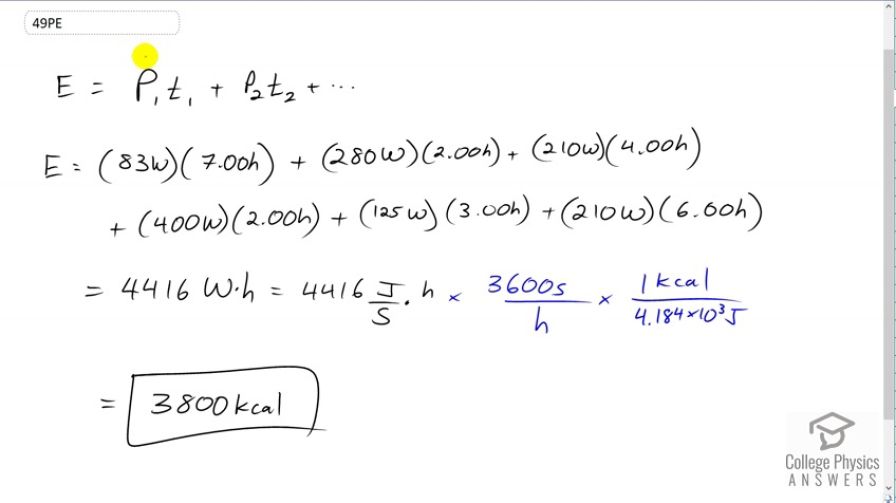 49PE
E = P₁t₁ + P₂t₂ + ...
E = (83W)(7.00h) + (280W)(2.00h) + (210W)(4.00h)
+ (400W)(2.00h) + (125W)(3.00h) + (210W)(6.00h)
= 4416 W·h = 4416 J/S · h × 3600s/h × 1kcal/4.184×10³J
= 3800kcal
College Physics
ANSWERS